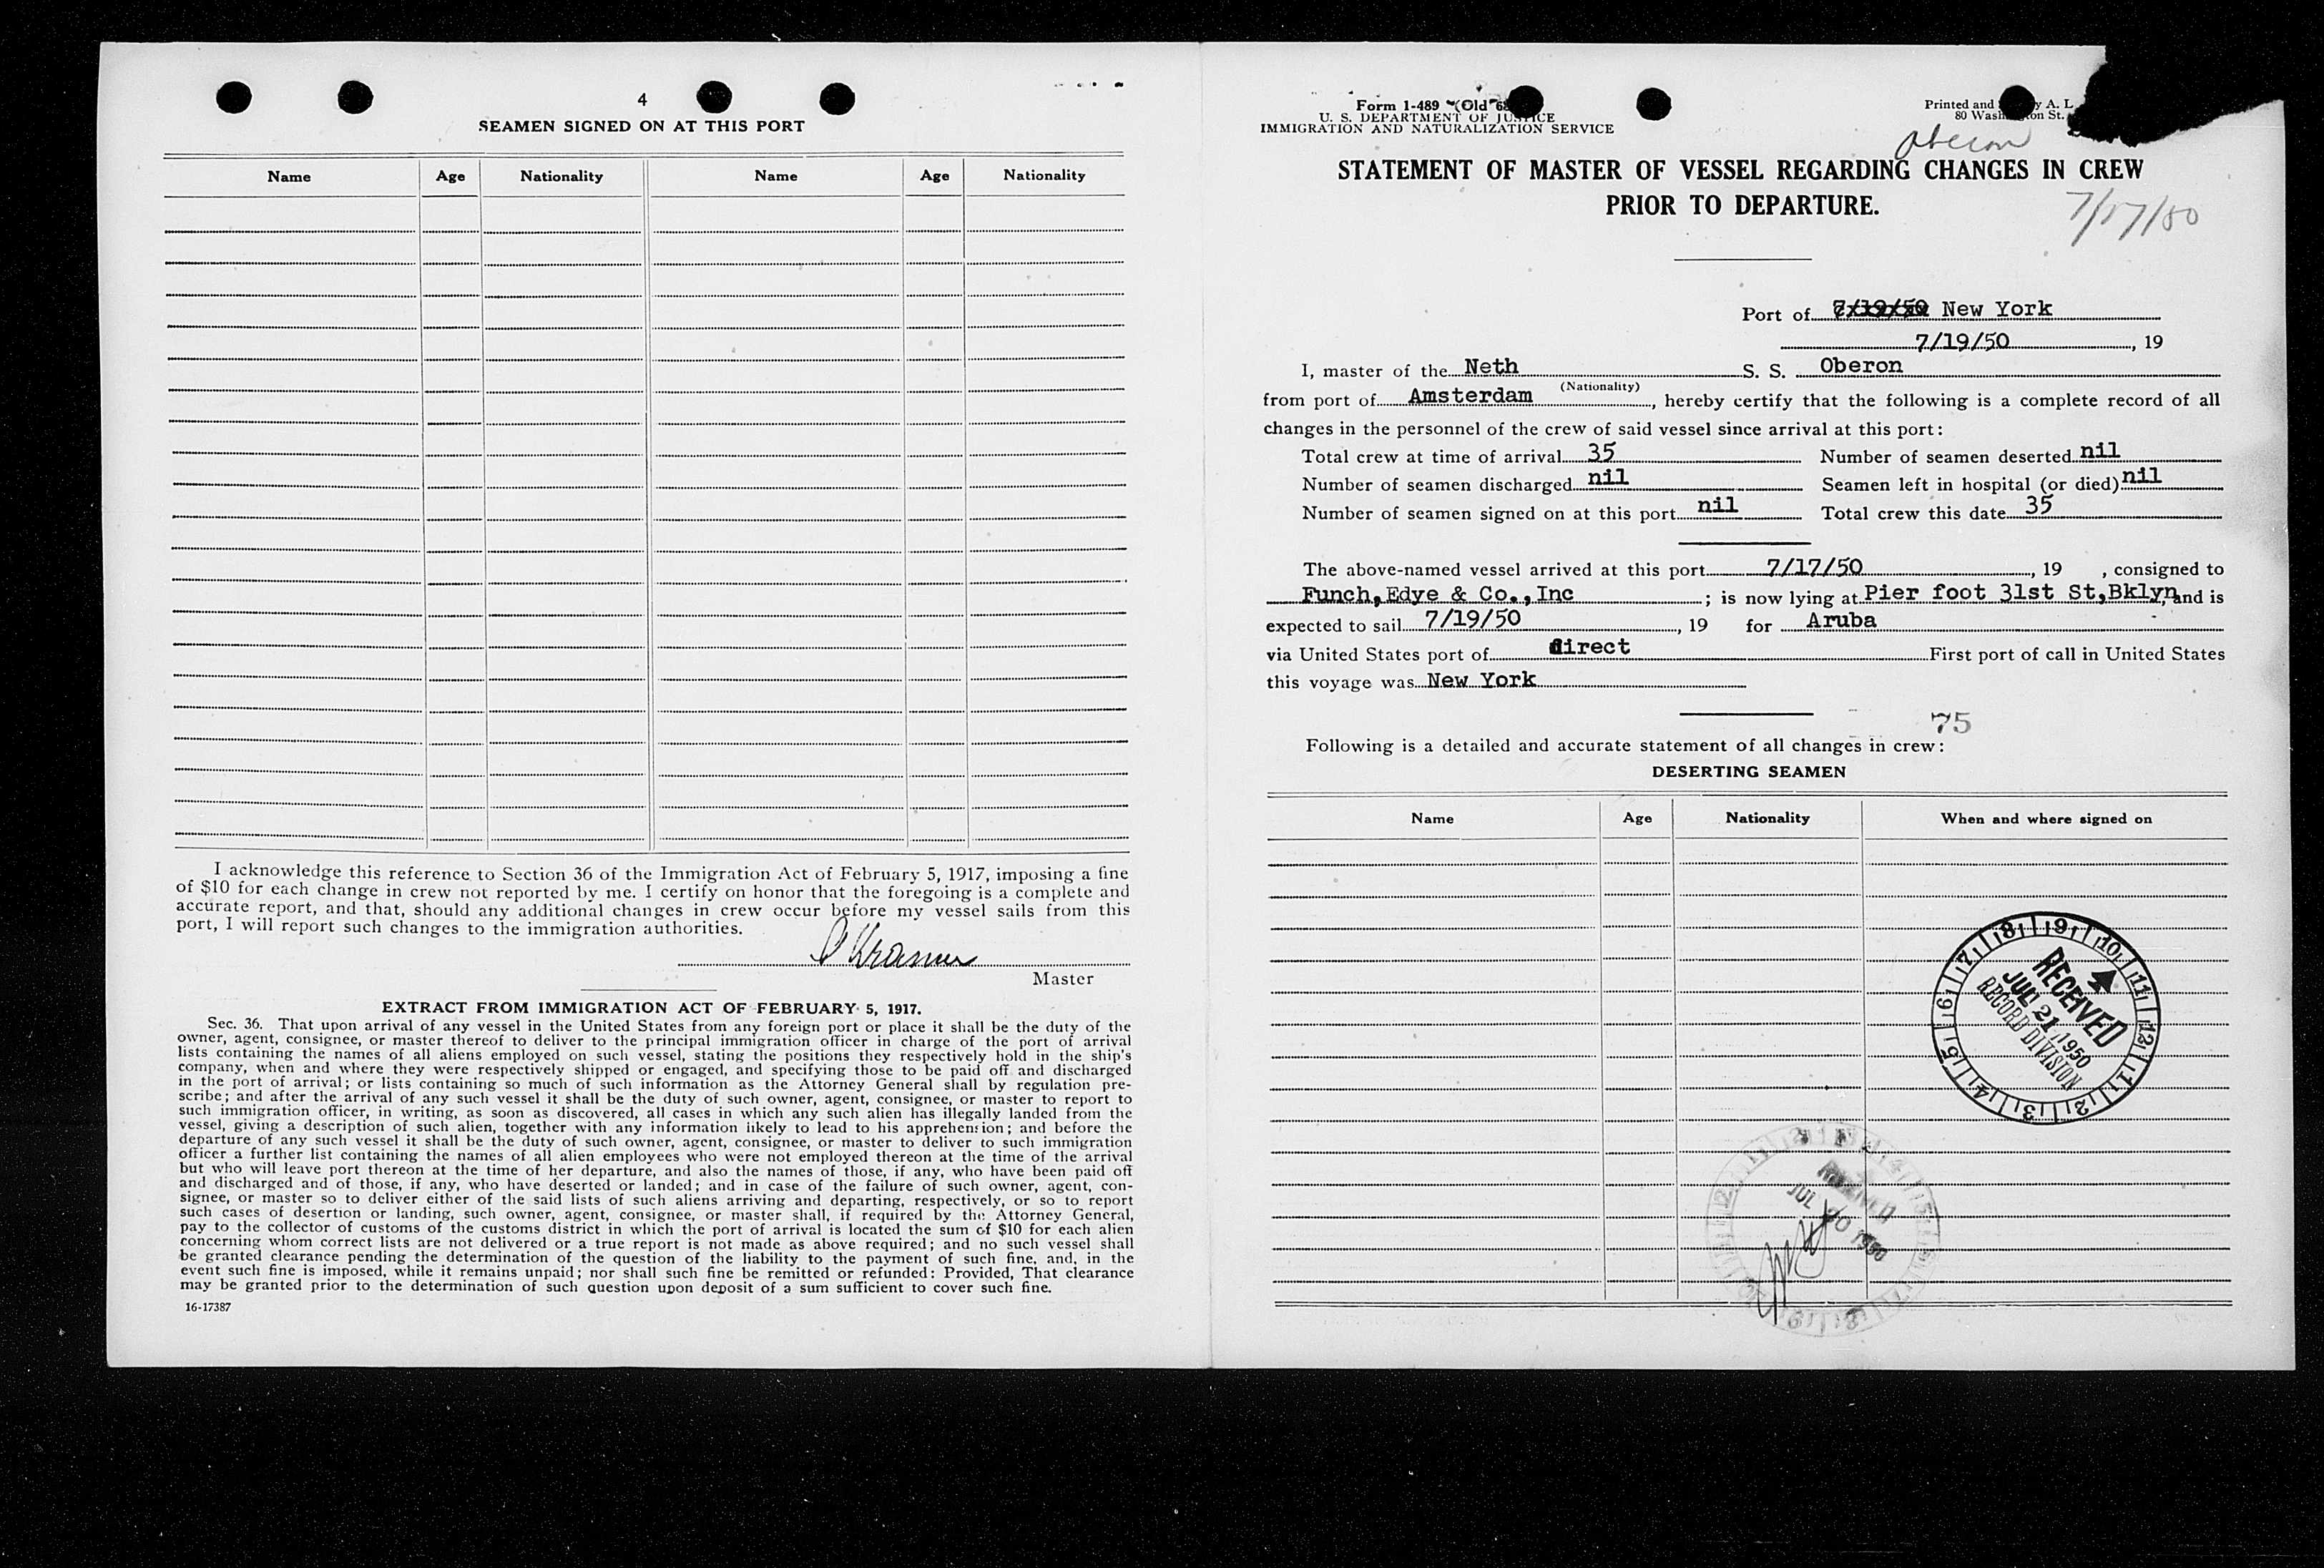 4
SEAMEN SIGNED ON AT THIS PORT
Name Age Nationality Name Age Nationality
I acknowledge this reference to Section 36 of the Immigration Act of February 5, 1917, imposing a fine
of $10 for each change in crew not reported by me. I certify on honor that the foregoing is a complete and
accurate report, and that, should any additional changes in crew occur before my vessel sails from this
port, I will report such changes to the immigration authorities.
Master
EXTRACT FROM IMMIGRATION ACT OF FEBRUARY 5, 1917.
Sec. 36. That upon arrival of any vessel in the United States from any foreign port or place it shall be the duty of the
owner, agent, consignee, or master thereof to deliver to the principal immigration officer in charge of the port of arrival
lists containing the names of all aliens employed on such vessel, stating the positions they respectively hold in the ship's
company, when and where they were respectively shipped or engaged, and specifying those to be paid off and discharged
in the port of arrival; or lists containing so much of such information as the Attorney General shall by regulation pre-
scribe; and after the arrival of any such vessel it shall be the duty of such owner, agent, consignee, or master to report to
such immigration officer, in writing, as soon as discovered, all cases in which any such alien has illegally landed from the
vessel, giving a description of such alien, together with any information likely to lead to his apprehension; and before the
departure of any such vessel it shall be the duty of such owner, agent, consignee, or master to deliver to such immigration
officer a further list containing the names of all alien employees who were not employed thereon at the time of the arrival
but who will leave port thereon at the time of her departure, and also the names of those, if any, who have been paid off
and discharged and of those, if any, who have deserted or landed; and in case of the failure of such owner, agent, con-
signee, or master so to deliver either of the said lists of such aliens arriving and departing, respectively, or so to report
such cases of desertion or landing, such owner, agent, consignee, or master shall, if required by the Attorney General,
pay to the collector of customs of the customs district in which the port of arrival is located the sum of $10 for each alien
concerning whom correct lists are not delivered or a true report is not made as above required; and no such vessel shall
be granted clearance pending the determination of the question of the liability to the payment of such fine, and, in the
event such fine is imposed, while it remains unpaid; nor shall such fine be remitted or refunded: Provided, That clearance
may be granted prior to the determination of such question upon deposit of a sum sufficient to cover such fine.
16-17387
Form I-489 (Old
U. S. DEPARTMENT OF JUSTICE
IMMIGRATION AND NATURALIZATION SERVICE
Printed and A. L
80 Washington St.
Oberon
STATEMENT OF MASTER OF VESSEL REGARDING CHANGES IN CREW
PRIOR TO DEPARTURE.
7/17/50
Port of 7/19/50 New York
7/19/50, 19
I, master of the Neth S. S. Oberon
(Nationality)
from port of Amsterdam, hereby certify that the following is a complete record of all
changes in the personnel of the crew of said vessel since arrival at this port:
Total crew at time of arrival 35 Number of seamen deserted nil
Number of seamen discharged nil Seamen left in hospital (or died) nil
Number of seamen signed on at this port nil Total crew this date 35
The above-named vessel arrived at this port 7/17/50, 19 , consigned to
Funch,Edye & Co.,Inc ; is now lying at Pier foot 31st St,Bklyn, and is
expected to sail 7/19/50, 19 for Aruba
via United States port of direct First port of call in United States
this voyage was New York
75
Following is a detailed and accurate statement of all changes in crew:
DESERTING SEAMEN
Name Age Nationality When and where signed on
RECEIVED
JUL 21 1950
RECORD DIVISION
RECEIVED
JUL 20 1950